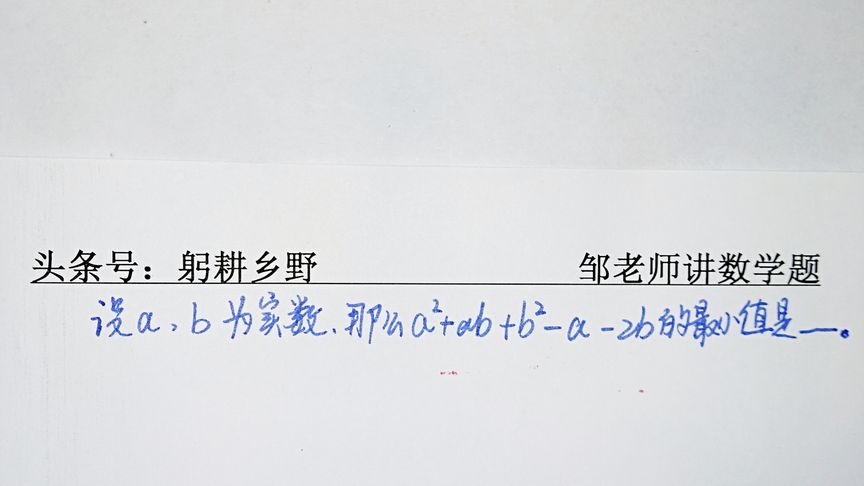 头条号：躬耕乡野 邹老师讲数学题
设a，b为实数，那么a²+ab+b²-a-2b的最小值是__。